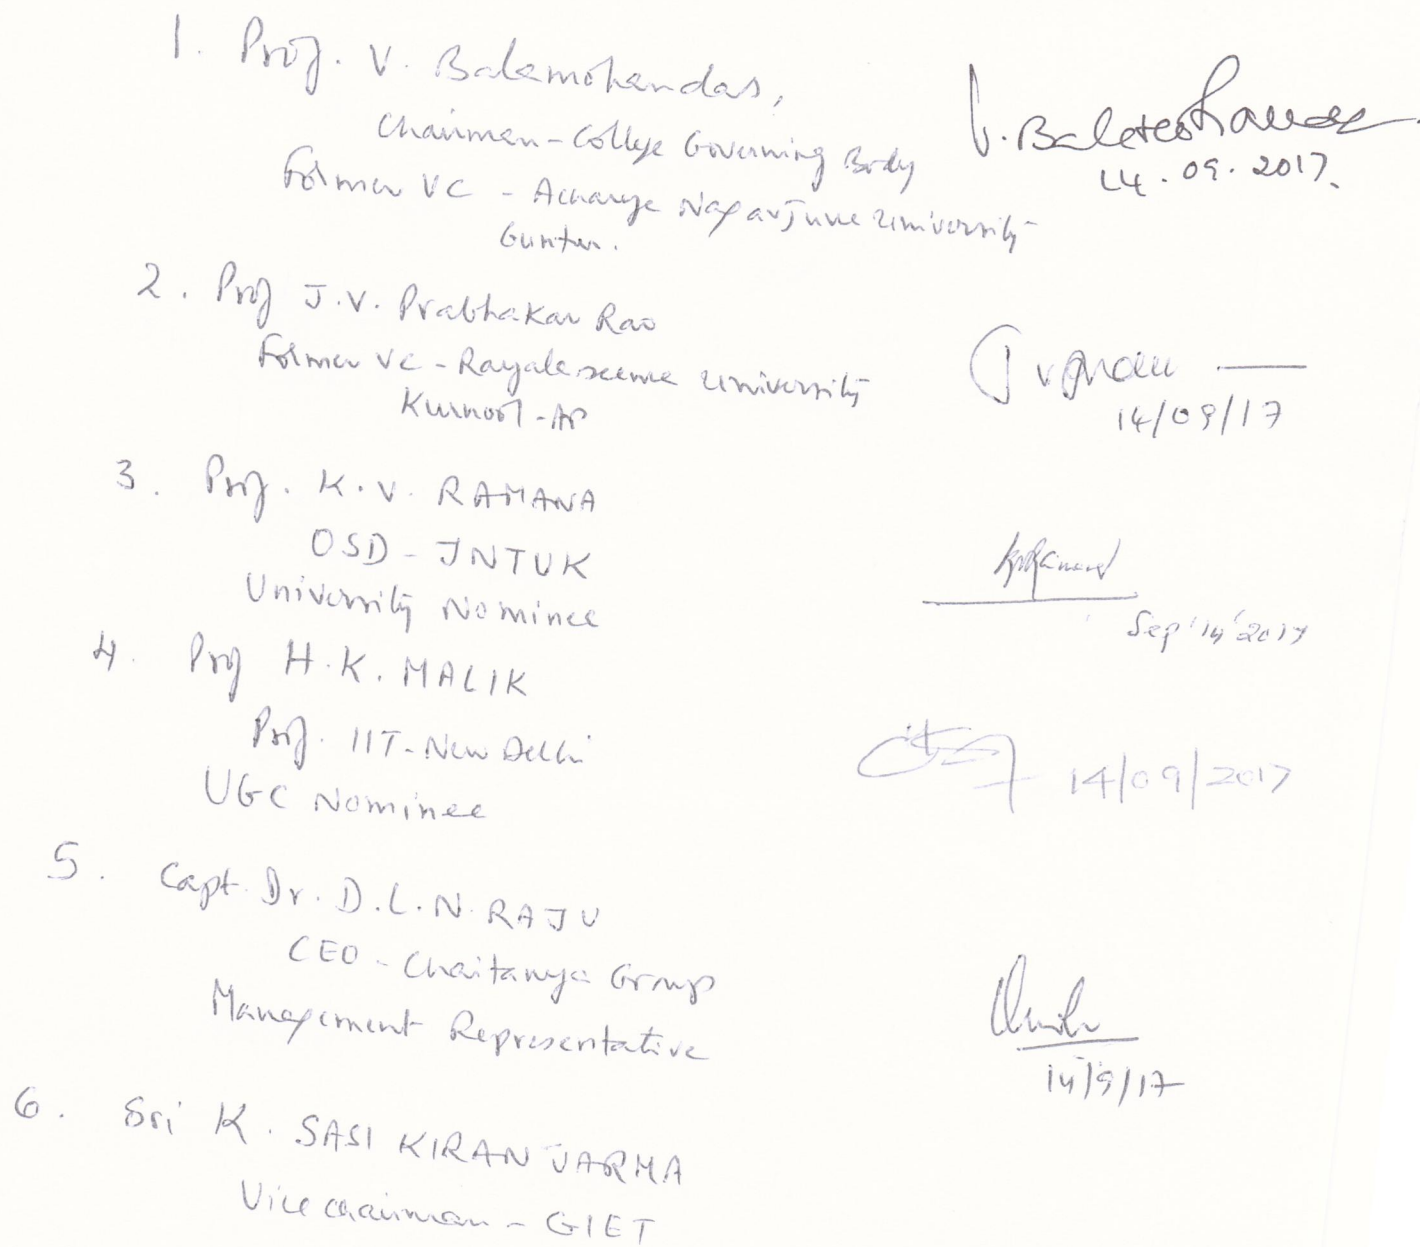 1. Prof. V. Balamohandas,
Chairman - College Governing Body
Former VC - Acharya Nagarjuna University
Guntur.
V. Bala
14.09.2017.
2. Prof J.V. Prabhakar Rao
Former VC - Rayalaseema University
Kurnool - AP
14/09/17
3. Prof. K.V. RAMANA
OSD - JNTUK
University Nominee
Sep'14'2017
4. Prof H.K. MALIK
Prof. IIT - New Delhi
UGC Nominee
14/09/2017
5. Capt. Dr. D.L.N. RAJU
CEO - Chaitanya Group
Management Representative
14/9/17
6. Sri K. SASI KIRAN VARMA
Vice chairman - GIET